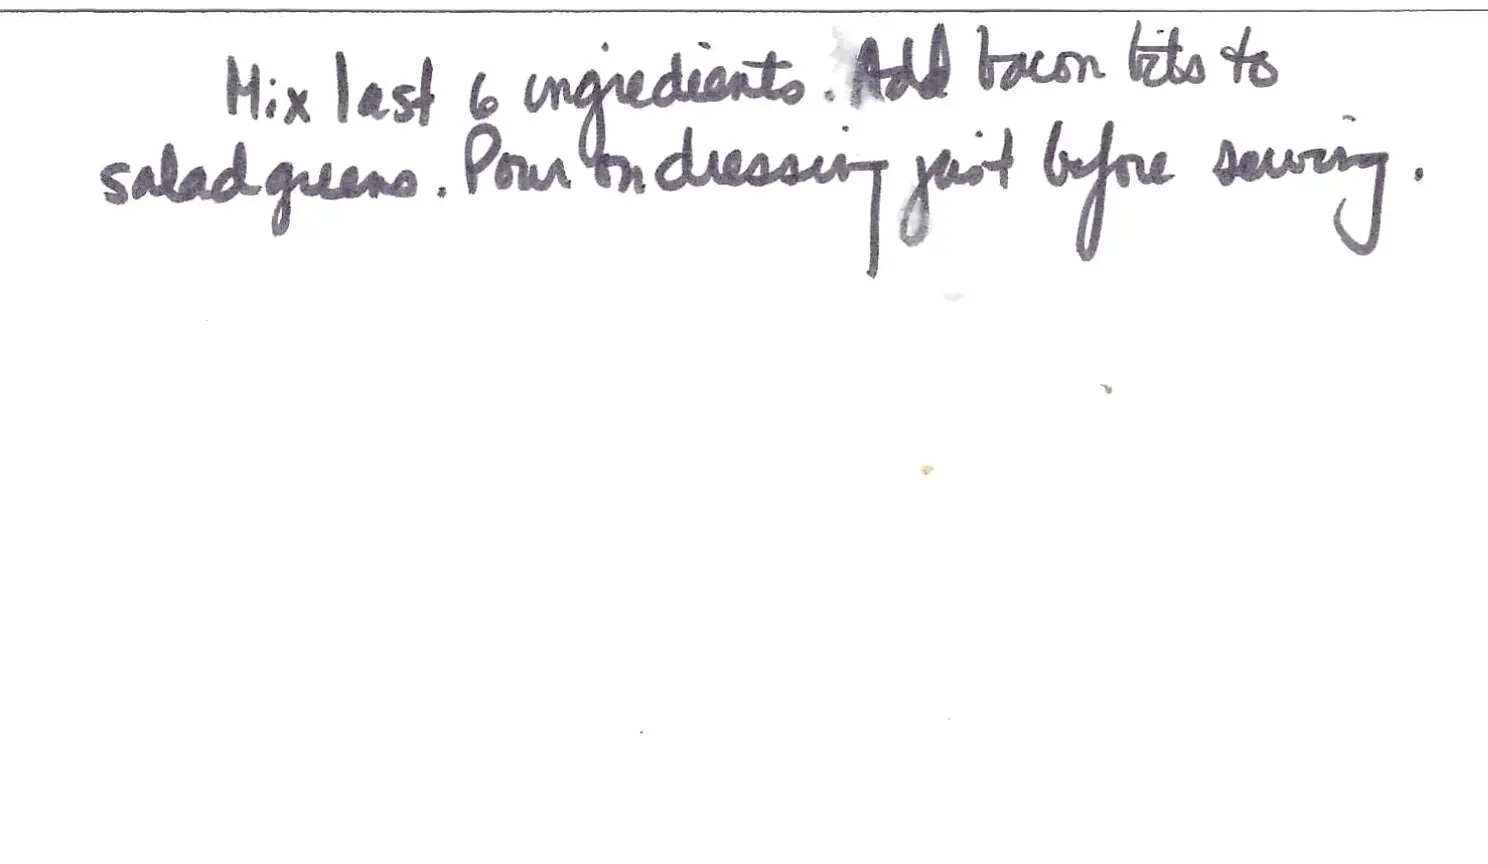 Mix last 6 ingredients. Add bacon bits to
salad greens. Pour on dressing just before serving.